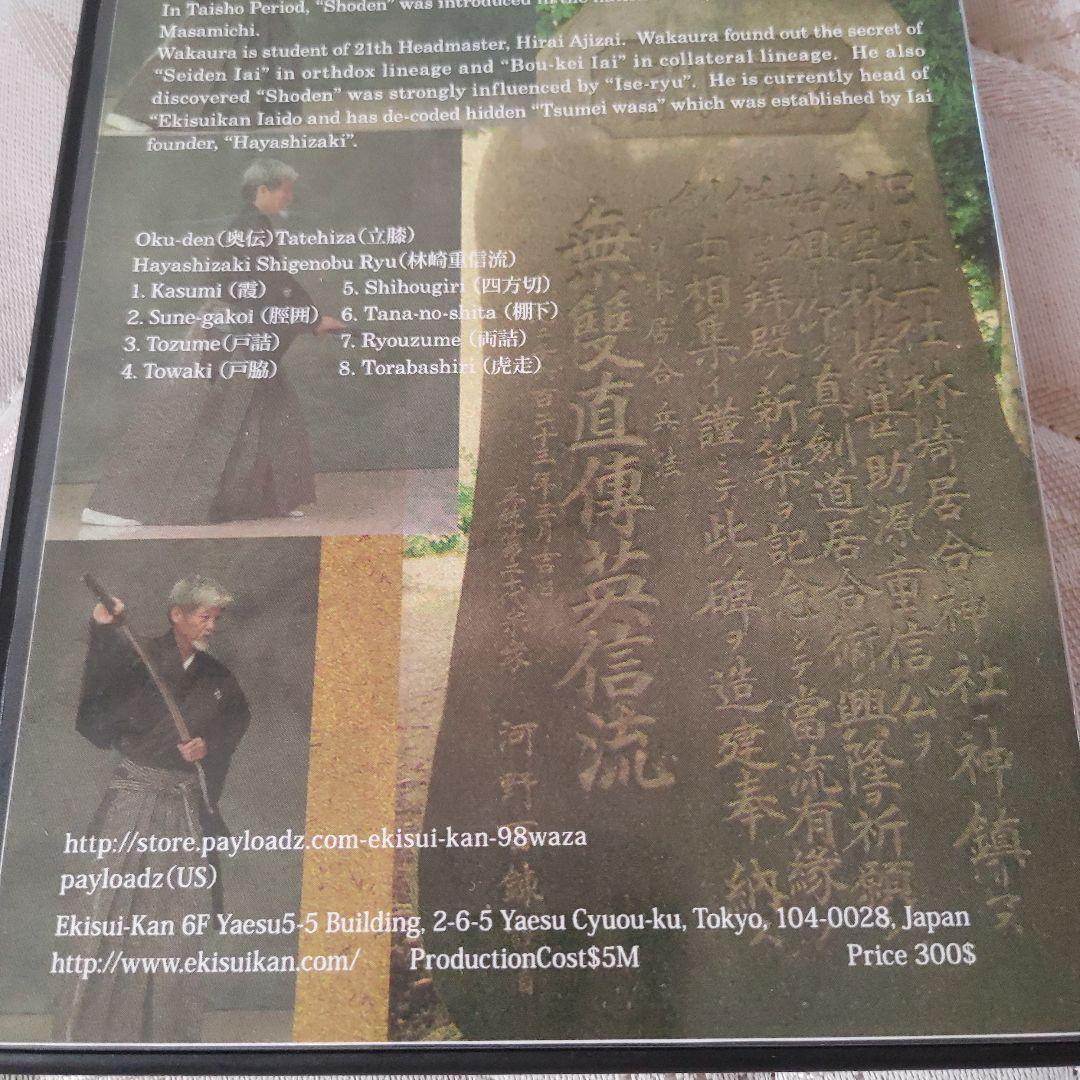 In Taisho Period, “Shoden” was introduced in the
Masamichi.
Wakaura is student of 21th Headmaster, Hirai Ajizai. Wakaura found out the secret of
“Seiden Iai” in orthdox lineage and “Bou-kei Iai” in collateral lineage. He also
discovered “Shoden” was strongly influenced by “Ise-ryu”. He is currently head of
“Ekisuikan Iaido and has de-coded hidden “Tsumei wasa” which was established by Iai
founder, “Hayashizaki”.
Oku-den(奥伝)Tatehiza(立膝)
Hayashizaki Shigenobu Ryu(林崎重信流)
1. Kasumi (霞)
2. Sune-gakoi (脛囲)
3. Tozume(戸詰)
4. Towaki (戸脇)
5. Shihougiri (四方切)
6. Tana-no-shita (棚下)
7. Ryouzume (両詰)
8. Torabashiri(虎走)
居合神社神鎮リマス
林崎甚助源重信公ヲ
始祖 真剣道居合術ノ興隆ヲ祈願
拝殿ノ新築ヲ記念シテ當流有縁ノ
士相集イ謹ミテ此ノ碑ヲ造建奉納ス
日本居合兵法
無雙直傳英信流
百二十三年三月吉日
河野百錬
http://store.payloadz.com-ekisui-kan-98waza
payloadz(US)
Ekisui-Kan 6F Yaesu5-5 Building, 2-6-5 Yaesu Cyuou-ku, Tokyo, 104-0028, Japan
http://www.ekisuikan.com/ ProductionCost$5M Price 300$